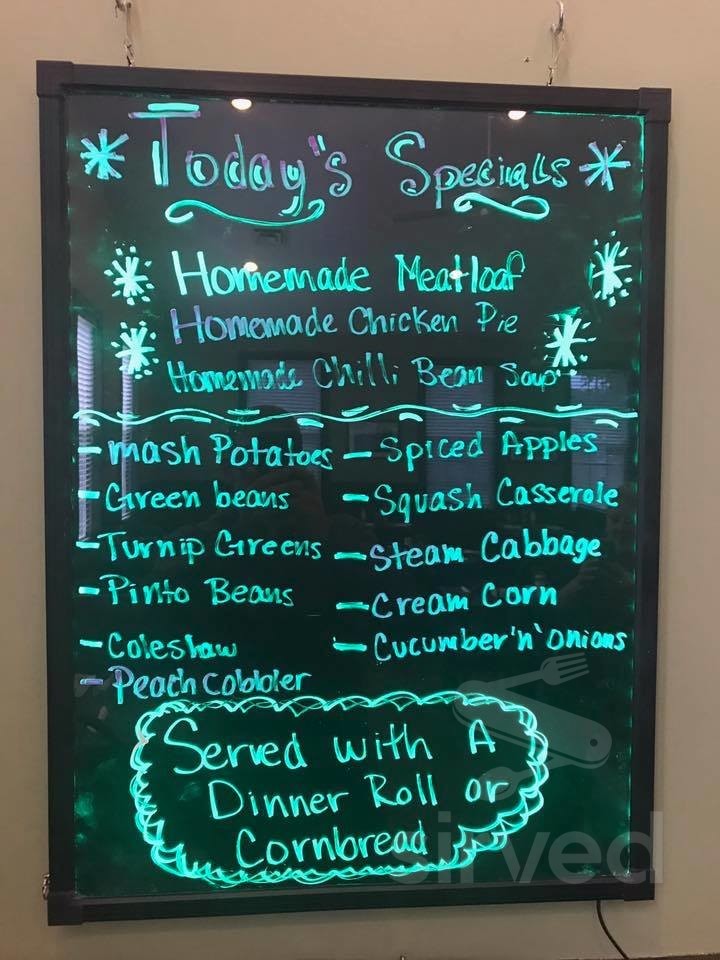 Today's Specials
Homemade Meatloaf
Homemade Chicken Pie
Homemade Chilli Bean Soup
- mash Potatoes
- Green beans
- Turnip Greens
- Pinto Beans
- Coleshaw
- Peach cobbler
- Spiced Apples
- Squash Casserole
- Steam Cabbage
- Cream Corn
- Cucumber 'n' onions
Served with A
Dinner Roll or
Cornbread
sirved